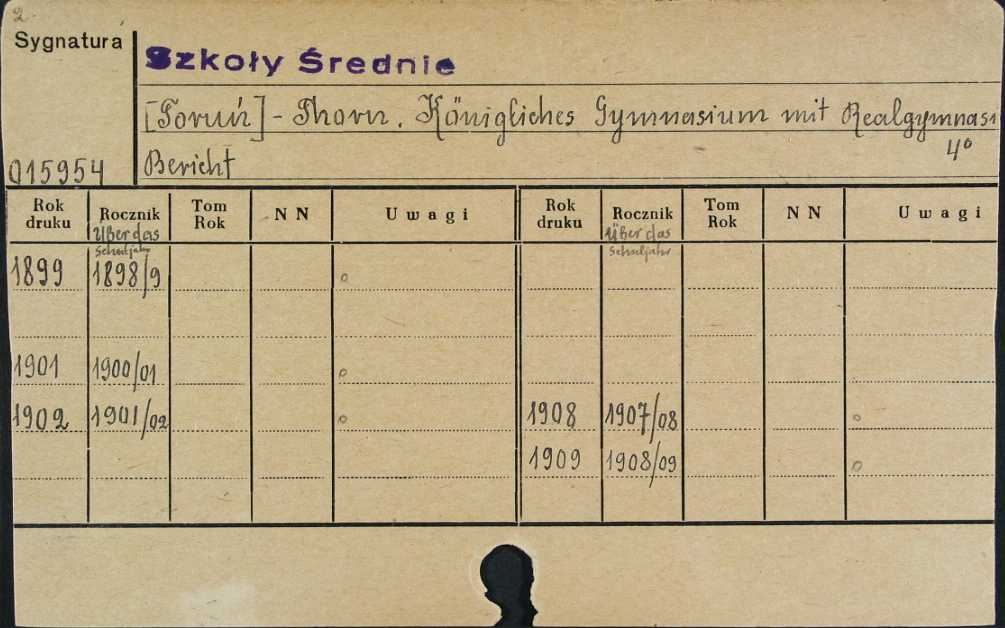 2
Sygnatura
Szkoły Średnie
[Toruń] - Thorn. Königliches Gymnasium mit Realgymnasi
4°
015954 Bericht
Rok druku Rocznik Tom Rok N N Uwagi Rok druku Rocznik Tom Rok N N Uwagi
Über das Schuljahr Über das Schuljahr
1899 1898/9 o
1901 1900/01 o
1902 1901/02 o 1908 1907/08 o
1909 1908/09 o